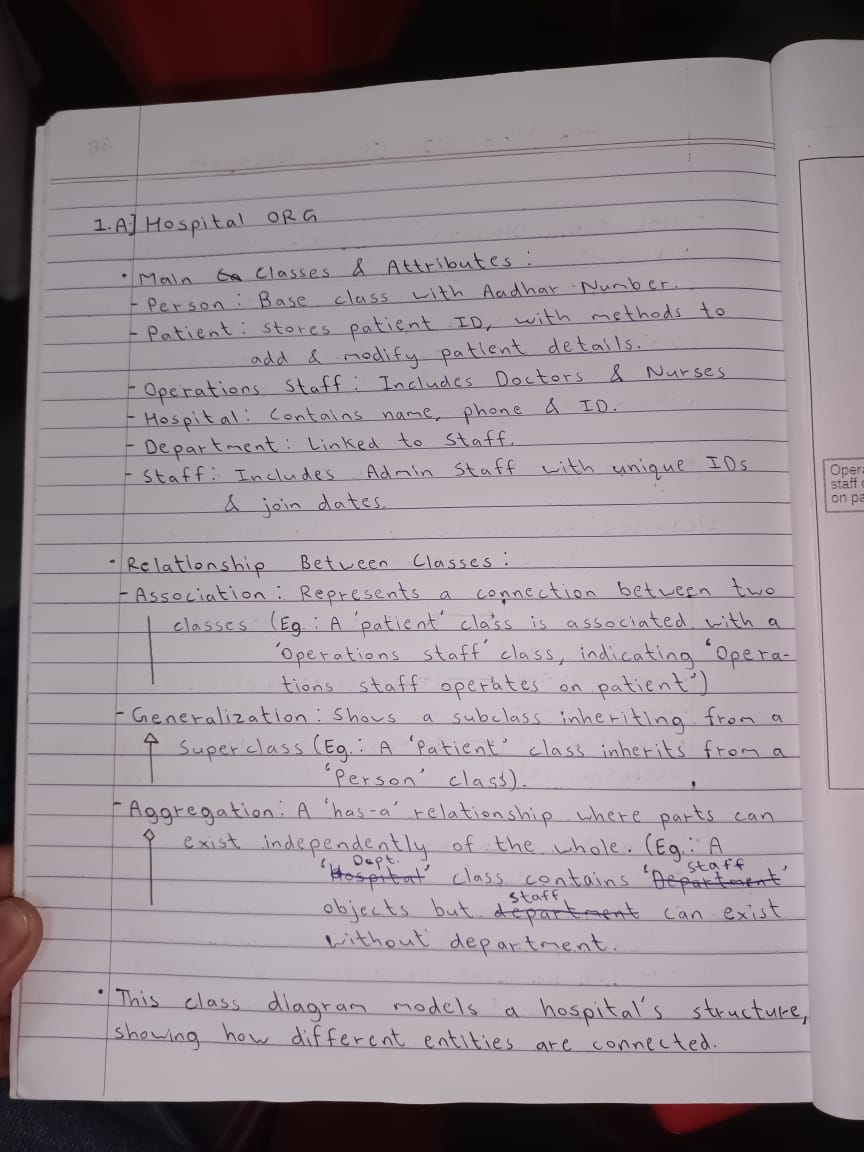 1.A] Hospital ORG
• Main Classes & Attributes :
- Person : Base class with Aadhar Number.
- Patient : stores patient ID, with methods to
add & modify patient details.
- Operations Staff : Includes Doctors & Nurses
- Hospital : Contains name, phone & ID.
- Department : Linked to Staff.
- Staff : Includes Admin Staff with unique IDs
& join dates.
• Relationship Between Classes :
- Association : Represents a connection between two
classes (Eg. : A 'patient' class is associated with a
'Operations staff' class, indicating 'Opera-
tions staff operates on patient')
- Generalization : Shows a subclass inheriting from a
superclass (Eg. : A 'Patient' class inherits from a
'Person' class).
- Aggregation : A 'has-a' relationship where parts can
exist independently of the whole. (Eg. : A
Dept. staff
'Hospital' class contains 'Department'
staff
objects but department can exist
without department.
• This class diagram models a hospital's structure,
showing how different entities are connected.
Oper
staff
on pa